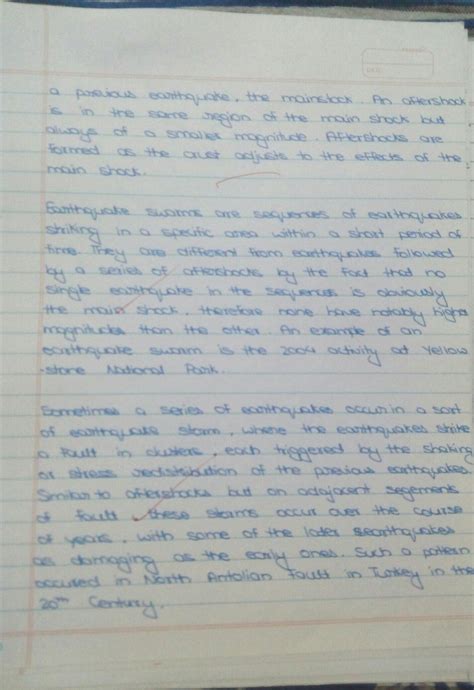 a previous earthquake, the mainshock. An aftershock
is in the same region of the main shock but
always of a smaller magnitude. Aftershocks are
formed as the crust adjusts to the effects of the
main shock.
Earthquake swarms are sequences of earthquakes
striking in a specific area within a short period of
time. They are different from earthquakes followed
by a series of aftershocks by the fact that no
single earthquake in the sequences is obviously
the main shock, therefore none have notably higher
magnitudes than the other. An example of an
earthquake swarm is the 2004 activity at Yellow
-stone National Park.
Sometimes a series of earthquakes occur in a sort
of earthquake storm, where the earthquakes strike
a fault in clusters, each triggered by the shaking
or stress redistribution of the previous earthquakes.
Similar to aftershocks but on adjacent segements
of fault, these storms occur over the course
of years, with some of the later searthquakes
as damaging as the early ones. Such a pattern
occured in North Antolian fault in Turkey in the
20th Century.